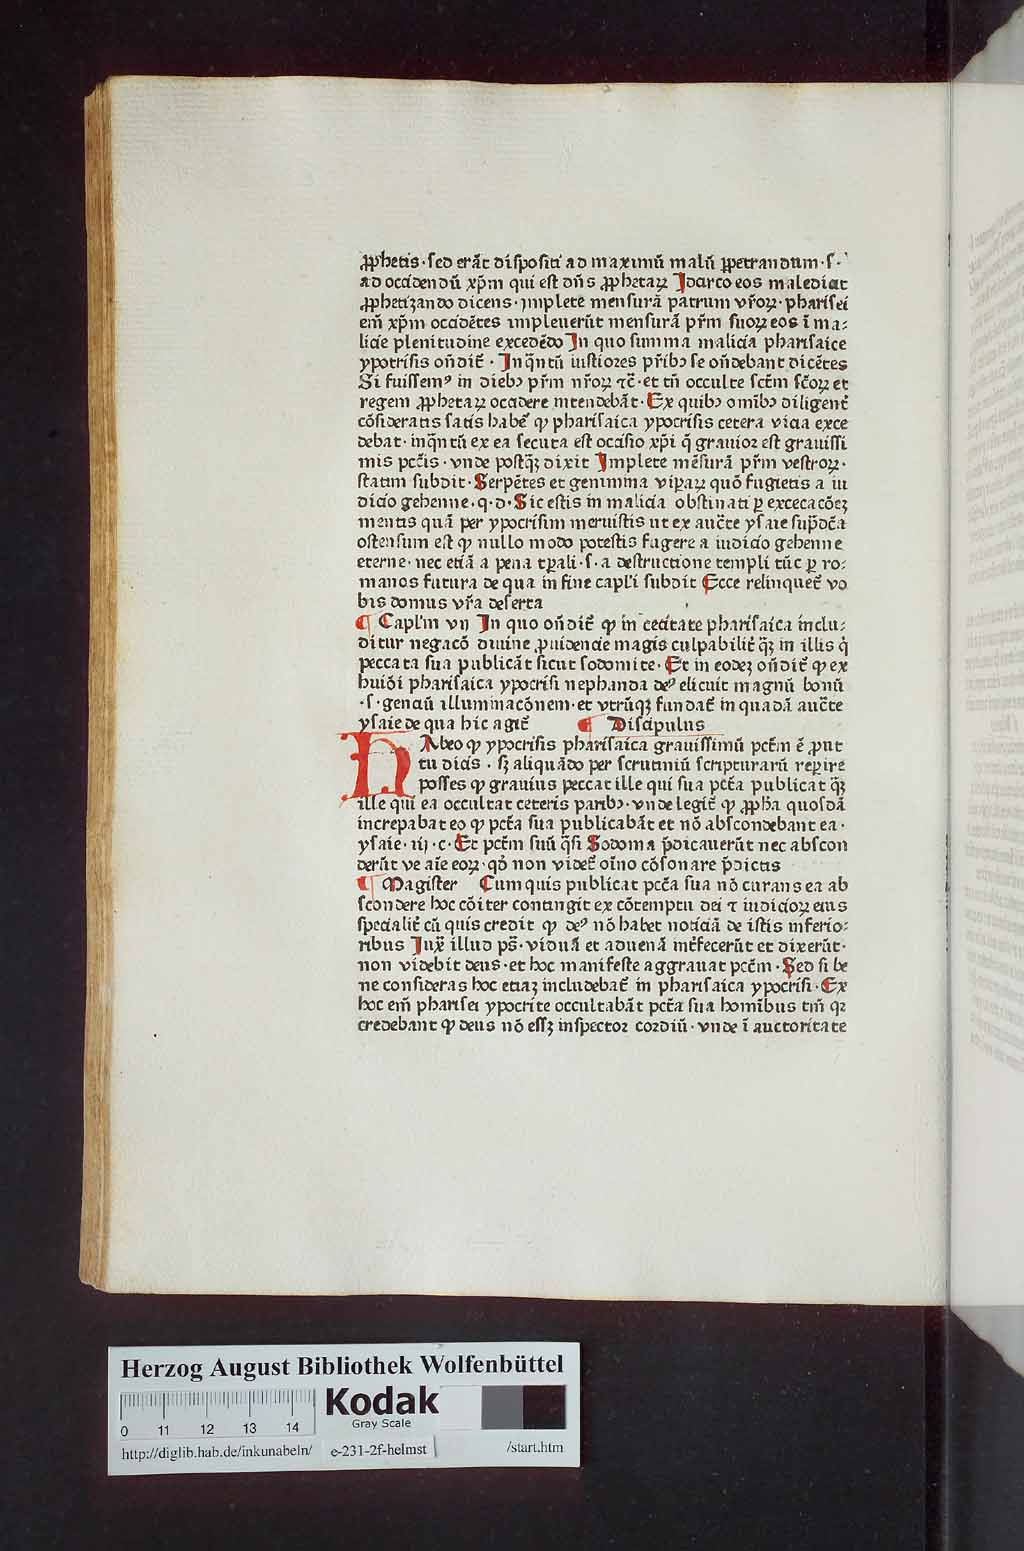 ꝓphetis · sed erāt dispositi ad maximū malū ꝑpetrandum · s ·
ad occidendū xp̄m qui est dn̄s ꝓphetaꝝ Jdcirco eos maledicit
ꝓphetizando dicens · implete mensurā patrum vr̄oꝝ · pharisei
em̄ xp̄m occidētes impleuerūt mensurā pr̄m suoꝝ eos ī ma⸗
licie plenitudine excedēdo Jn quo summa malicia pharisaice
ypocrisis on̄dit̄ · Jnq̄ntū iustiores pr̄ibꝫ se on̄debant dicētes
Si fuissemꝰ in diebꝫ pr̄m nr̄oꝝ ⁊c̄ · et tn̄ occulte sct̄m sc̄oꝝ et
regem ꝓphetaꝝ occidere intendebāt · Ex quibꝫ om̄ibꝫ diligent̄
cōsideratis satis habet̄ ꝙ pharisaica ypocrisis cetera vicia exce
debat · inq̄ntū ex ea secuta est occisio xp̄i q̄ grauior est grauissi
mis pct̄is · vnde postq̄ꝫ dixit Jmplete mēsurā pr̄m vestroꝝ ·
statim subdit · Serpētes et genimina viꝑaꝝ quō fugietis a iu
dicio gehenne · q · d · Sic estis in malicia obstinati ꝑ excecacōeꝫ
mentis quā per ypocrisim meruistis ut ex auct̄e ysaie sup̄dc̄a
ostensum est ꝙ nullo modo potestis fugere a iudicio gehenne
eterne · nec etiā a pena tꝑali · s · a destructione templi tūc ꝑ ro⸗
manos futura de qua in fine capl'i subdit Ecce relinquet̄ vo
bis domus vr̄a deserta
¶ Capl'm vij Jn quo on̄dit̄ ꝙ in cecitate pharisaica inclu⸗
ditur negacō diuine ꝓuidencie magis culpabilit̄ q̄ꝫ in illis q̄
peccata sua publicāt sicut sodomite · Et in eodeꝫ on̄dit̄ ꝙ ex
huiōi pharisaica ypocrisi nephanda deꝰ elicuit magnū bonū
· s · genciū illuminacōnem · et vtrūqꝫ fundat̄ in quadā auct̄e
ysaie de qua hic agit̄ ¶ Discipulus
HAbeo ꝙ ypocrisis pharisaica grauissimū pct̄m ē ꝓut
tu dicis · sꝫ aliquādo per scrutiniū scripturarū reꝑire
posses ꝙ grauius peccat ille qui sua pct̄a publicat q̄ꝫ
ille qui ea occultat ceteris paribꝫ · vnde legit̄ ꝙ ꝓpha quosdā
increpabat eo ꝙ pct̄a sua publicabāt et nō abscondebant ea ·
ysaie · iij · c · Et pct̄m suū q̄si Sodoma p̄dicauerūt nec abscon
derūt ve aīe eoꝝ · qd̄ non videt̄ oīno cōsonare p̄dictis
¶ Magister Cum quis publicat pct̄a sua nō curans ea ab
scondere hoc cōiter contingit ex cōtemptu dei ⁊ iudicioꝝ eius
specialit̄ cū quis credit ꝙ deꝰ nō habet noticiā de istis inferio⸗
ribus Juxͣ illud ps̄ · viduā et aduenā int̄fecerūt et dixerūt ·
non videbit deus · et hoc manifeste aggrauat pct̄m · Sed si be
ne consideras hoc etiaꝫ includebat̄ in pharisaica ypocrisi · Ex
hoc em̄ pharisei ypocrite occultabāt pct̄a sua homībus tm̄ qꝛ
credebant ꝙ deus nō essꝫ inspector cordiū · vnde ī auctoritate
Herzog August Bibliothek Wolfenbüttel
Kodak
Gray Scale
0 11 12 13 14
http://diglib.hab.de/inkunabeln/ e-231-2f-helmst /start.htm